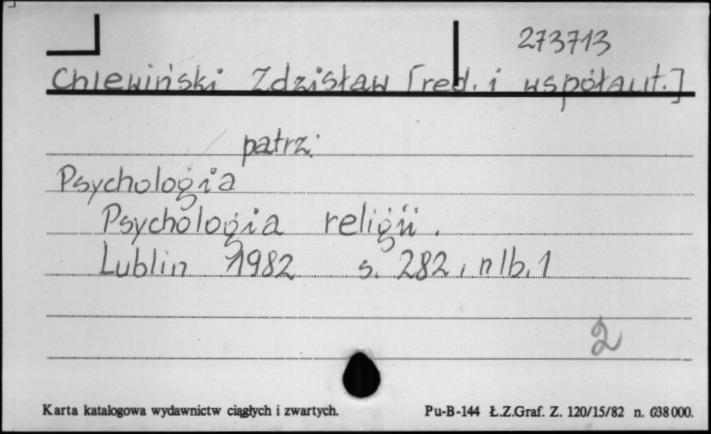 273713
Chlewiński Zdzisław [red. i współaut.]
patrz:
Psychologia
Psychologia religii.
Lublin 1982 s. 282, nlb. 1
2
Karta katalogowa wydawnictw ciągłych i zwartych. Pu-B-144 Ł.Z.Graf. Z. 120/15/82 n. 638000.